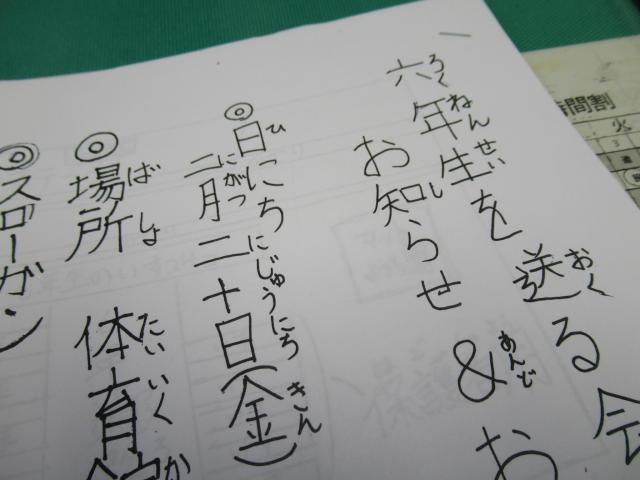 間割
火
ろくねんせい おく
六年生を送る会
し あんど
お知らせ&お
ひ
◎日にち
にがつ にじゅうにち きん
二月二十日(金)
ばしょ たいいくか
◎場所 体育館
◎スローガン